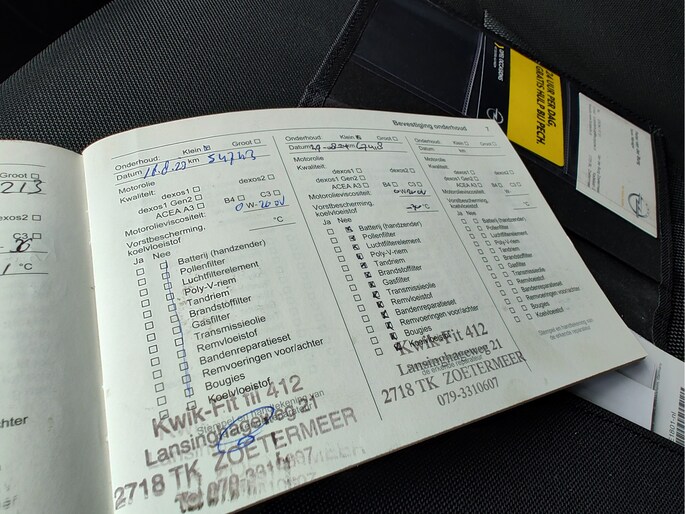 Groot
213
exos2
C3
°C
chter
Bevestiging onderhoud 7
Onderhoud: Klein Groot
Datum 16.8.23 km 54743
Motorolie
Kwaliteit: dexos1 dexos2
dexos1 Gen2
ACEA A3 B4 C3
Motorolieviscositeit: 0W-20
Vorstbescherming,
koelvloeistof °C
Ja Nee
Batterij (handzender)
Pollenfilter
Luchtfilterelement
Poly-V-riem
Tandriem
Brandstoffilter
Gasfilter
Transmissieolie
Remvloeistof
Bandenreparatieset
Remvoeringen voor/achter
Bougies
Koelvloeistof
Kwik-Fit fil 412
Lansinghageweg 21
2718 TK ZOETERMEER
Onderhoud: Klein Groot
Datum km
Motorolie
Kwaliteit: dexos1 dexos2
dexos1 Gen2
ACEA A3 B4 C3
Motorolieviscositeit:
Vorstbescherming,
koelvloeistof °C
Ja Nee
Batterij (handzender)
Pollenfilter
Luchtfilterelement
Poly-V-riem
Tandriem
Brandstoffilter
Gasfilter
Transmissieolie
Remvloeistof
Bandenreparatieset
Remvoeringen voor/achter
Bougies
Koelvloeistof
Kwik-Fit 412
Lansinghageweg 21
de erkende reparateur
2718 TK ZOETERMEER
079-3310607
Onderhoud: Klein Groot
Datum km
Motorolie
Kwaliteit: dexos1 dexos2
dexos1 Gen2
ACEA A3 B4 C3
Motorolieviscositeit:
Vorstbescherming,
koelvloeistof °C
Ja Nee
Batterij (handzender)
Pollenfilter
Luchtfilterelement
Poly-V-riem
Tandriem
Brandstoffilter
Gasfilter
Transmissieolie
Remvloeistof
Bandenreparatieset
Remvoeringen voor/achter
Bougies
Koelvloeistof
Stempel en handtekening van
de erkende reparateur
24 UUR PER DAG,
GRATIS HULP BIJ PECH.